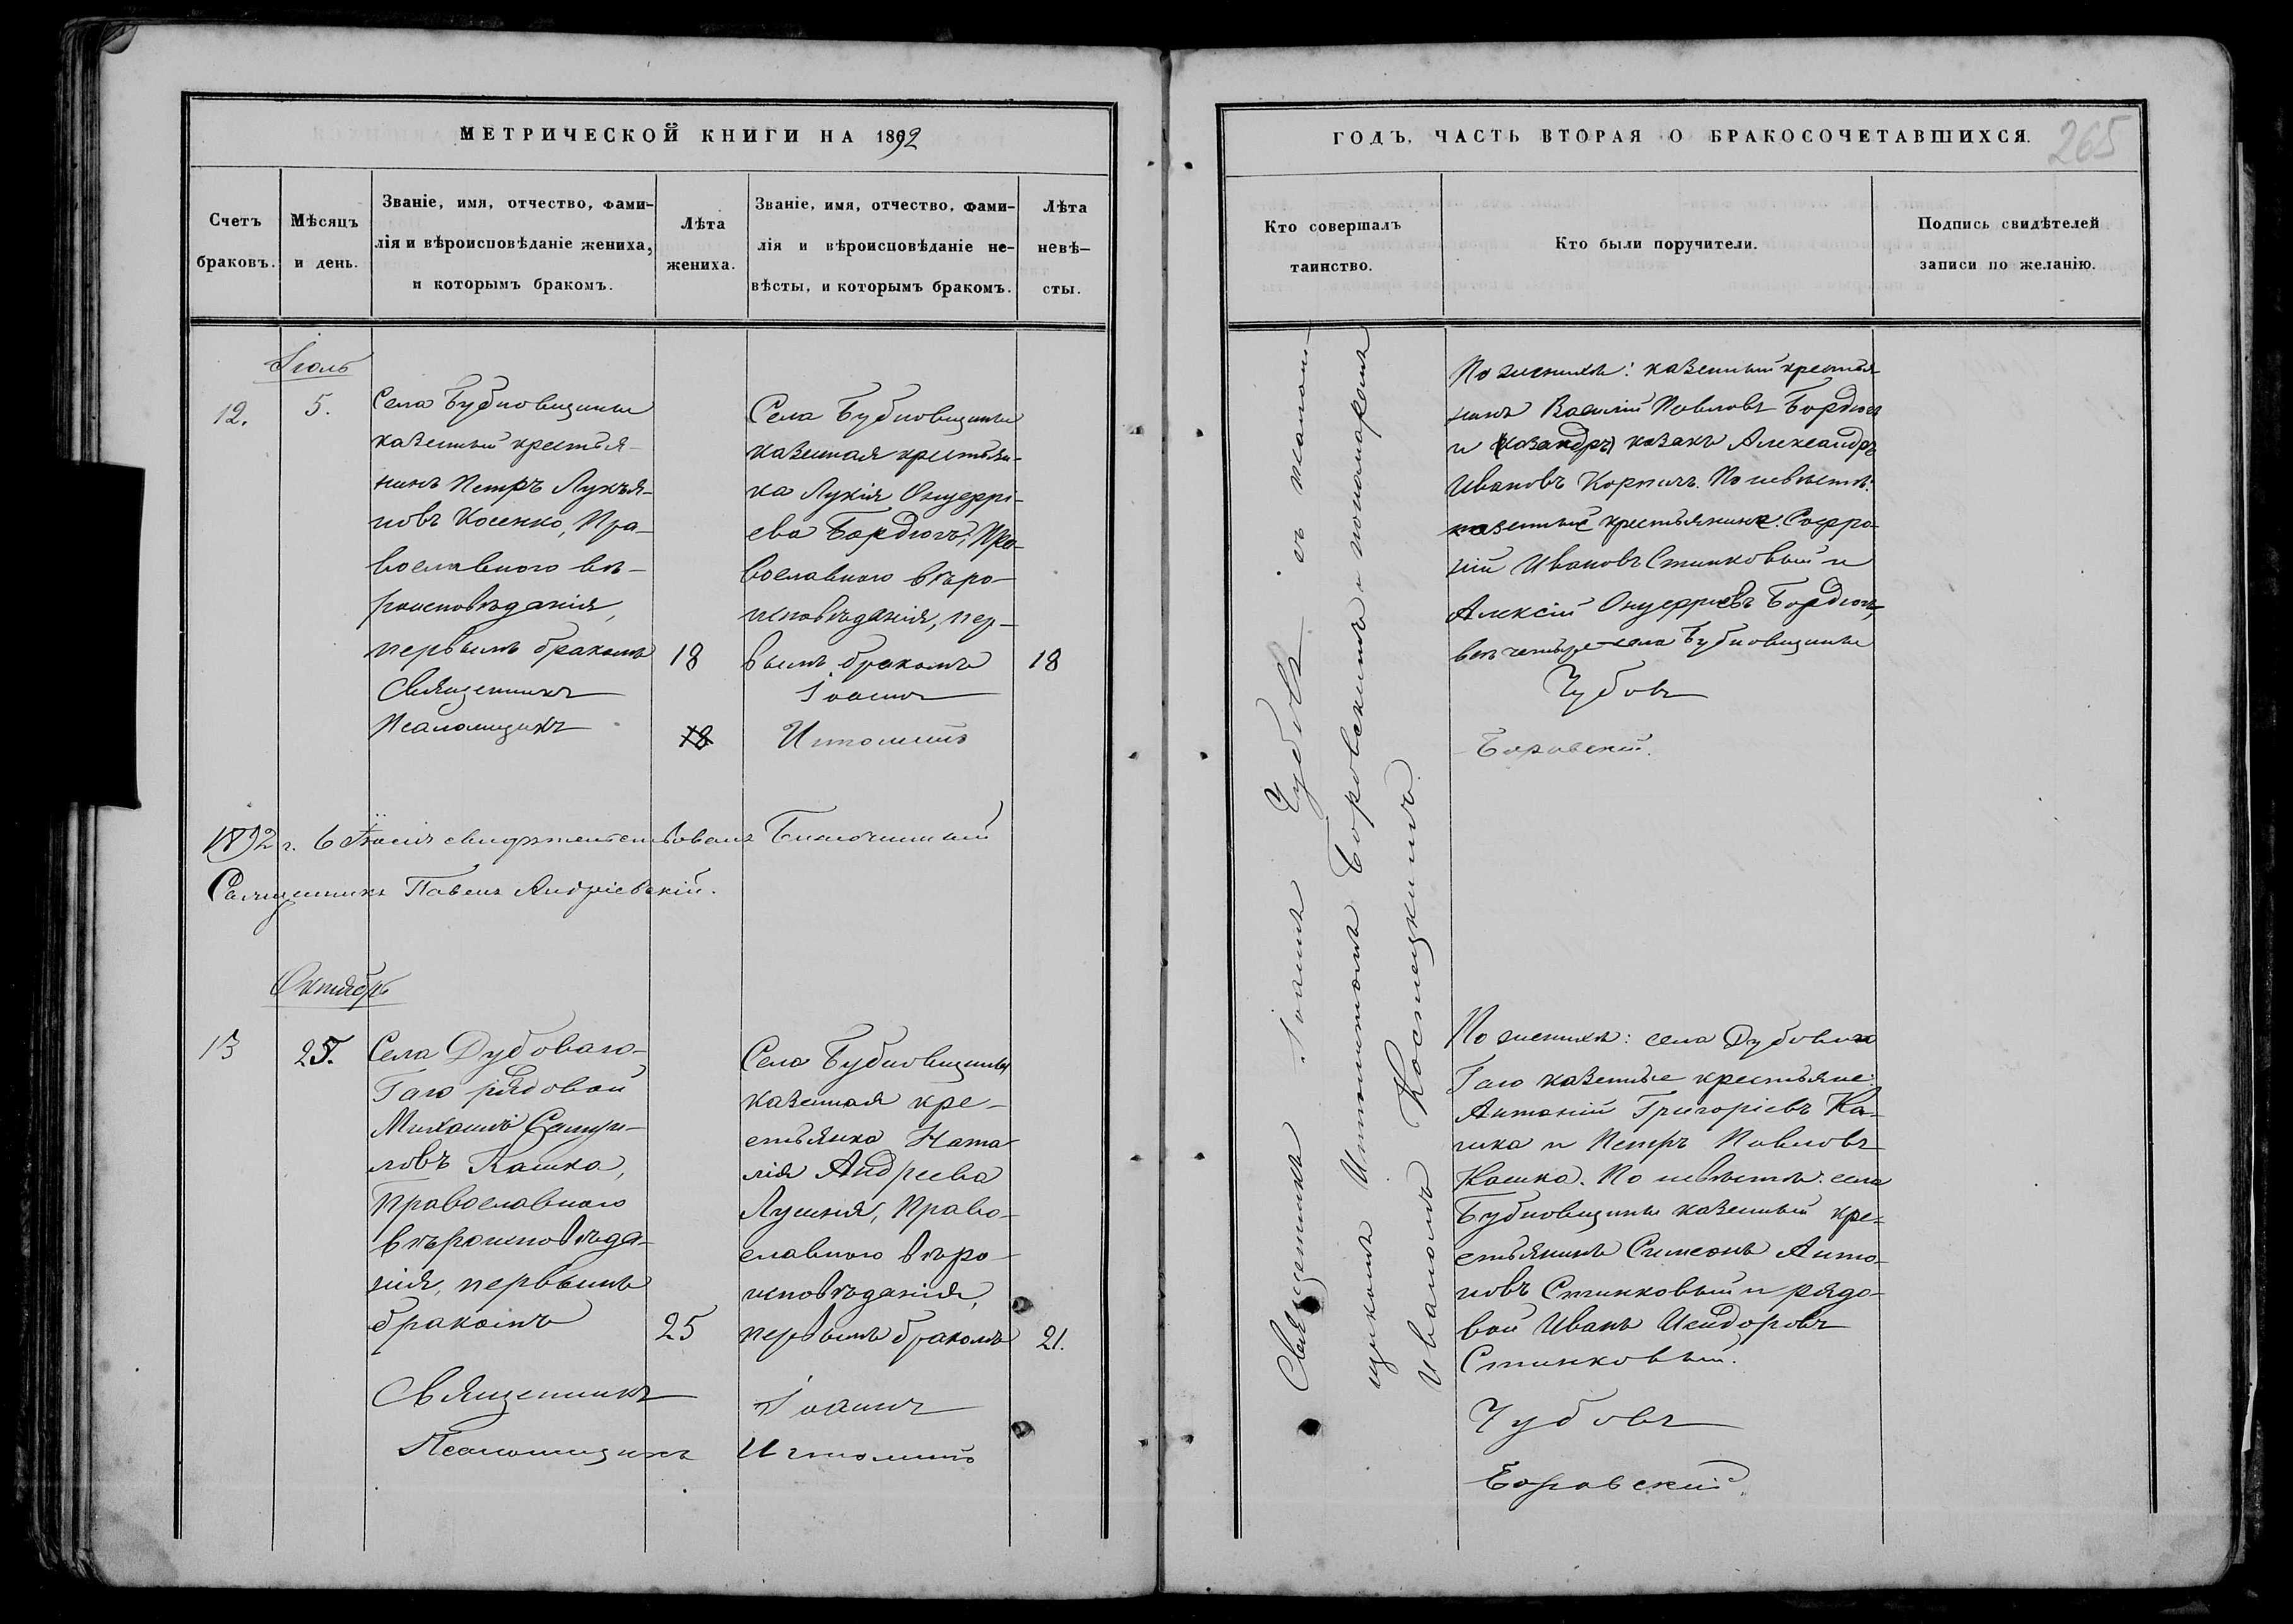 МЕТРИЧЕСКОЙ КНИГИ НА 1892
Счетъ
браковъ.
Мѣсяцъ
и день.
Званіе, имя, отчество, фами-
лія и вѣроисповѣданіе жениха,
и которымъ бракомъ.
Лѣта
жениха.
Званіе, имя, отчество, фами-
лія и вѣроисповѣданіе не-
вѣсты, и которымъ бракомъ.
Лѣта
невѣ-
сты.
Іюль
12.
5.
Села Бубновщины
казенный крестья-
нинъ Петръ Лукья-
новъ Косенко, Пра-
вославного вѣ-
роисповѣданія,
первымъ бракомъ
18
Священникъ
Псаломщикъ
18
Села Бубновщины
казенная крестьян-
ка Лукія Онуфрі-
ева Бардюгъ, Пра-
вославного вѣро-
исповѣданія, пер-
вымъ бракомъ
18
Іоаннъ
1892 г. 6 свидѣтельствовалъ Благочинный
Священникъ Павелъ Андріевскій.
Октябрь
13
25.
Села Дубоваго-
Гаю рядовой
Михаилъ
ловъ Кашка,
Православного
вѣроисповѣда-
нія, первымъ
бракомъ
25
Священникъ
Псаломщикъ
Села Бубновщины
казенная кре-
стьянка Ната-
лія Андреева
Лушня, Право-
славного вѣро-
исповѣданія,
первымъ бракомъ
21.
Іоаннъ
ГОДЪ, ЧАСТЬ ВТОРАЯ О БРАКОСОЧЕТАВШИХСЯ.
265
Кто совершалъ
таинство.
Кто были поручители.
Подпись свидѣтелей
записи по желанію.
Священникъ Іоаннъ Чубовъ съ псалом-
щикомъ Боровскимъ и пономаремъ
Иваномъ Костецкимъ.
По женихѣ: казенный крестья-
нинъ Василій Павловъ Бордюгъ
и (козакдръ) козакъ Александръ
Ивановъ Корничъ. По невѣстѣ:
казенные крестьянине: Софро-
ній Ивановъ Стинковый и
Алексій Онуфріевъ Бордюгъ,
всѣ четыре села Бубновщины
Чубовъ
Боровскій.
По женихѣ: села Дубового
Гаю казенные крестьяне:
Антоній Григоріевъ Ка-
шка и Петръ Павловъ
Кашка. По невѣстѣ: села
Бубновщины казенный кре-
стьянинъ Симеонъ Анто-
новъ Стинковый и рядо-
вой Иванъ Исидоровъ
Стинковый.
Чубовъ
Боровскій.